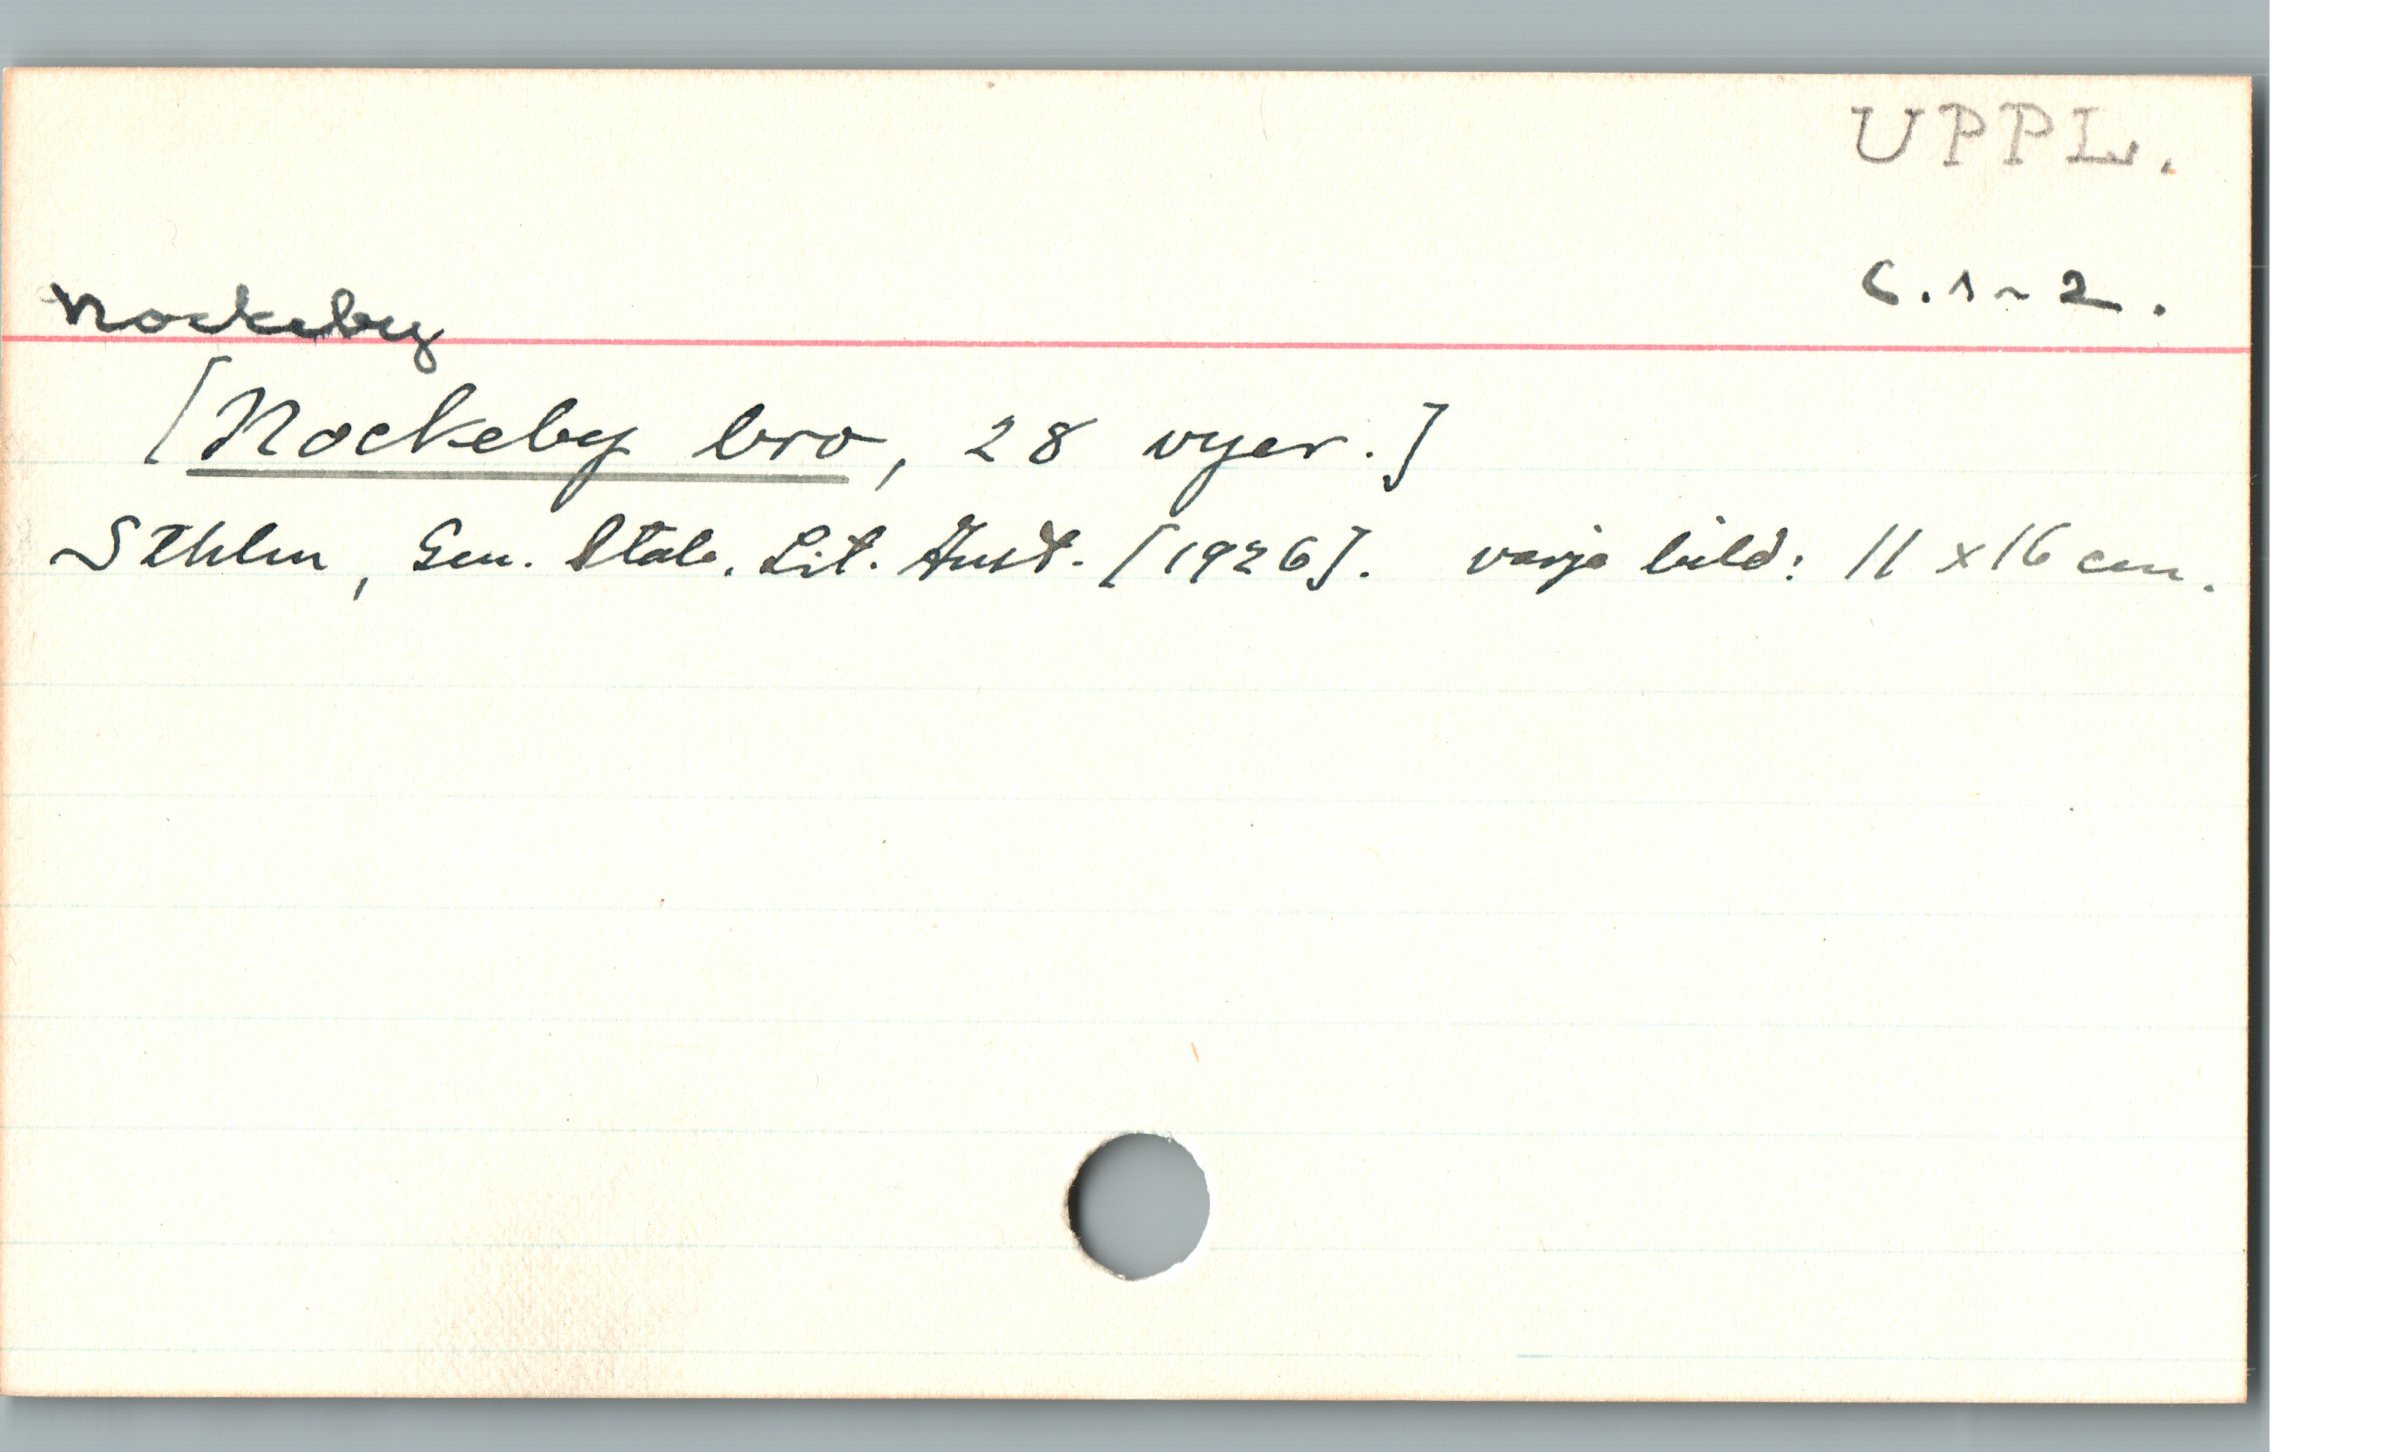 UPPL.
C.1-2.
Nockeby
[Nockeby bro, 28 vyer.]
Sthlm, Gen. Stab. Lit. Anst. [1926]. varje bild: 11 x 16 cm.